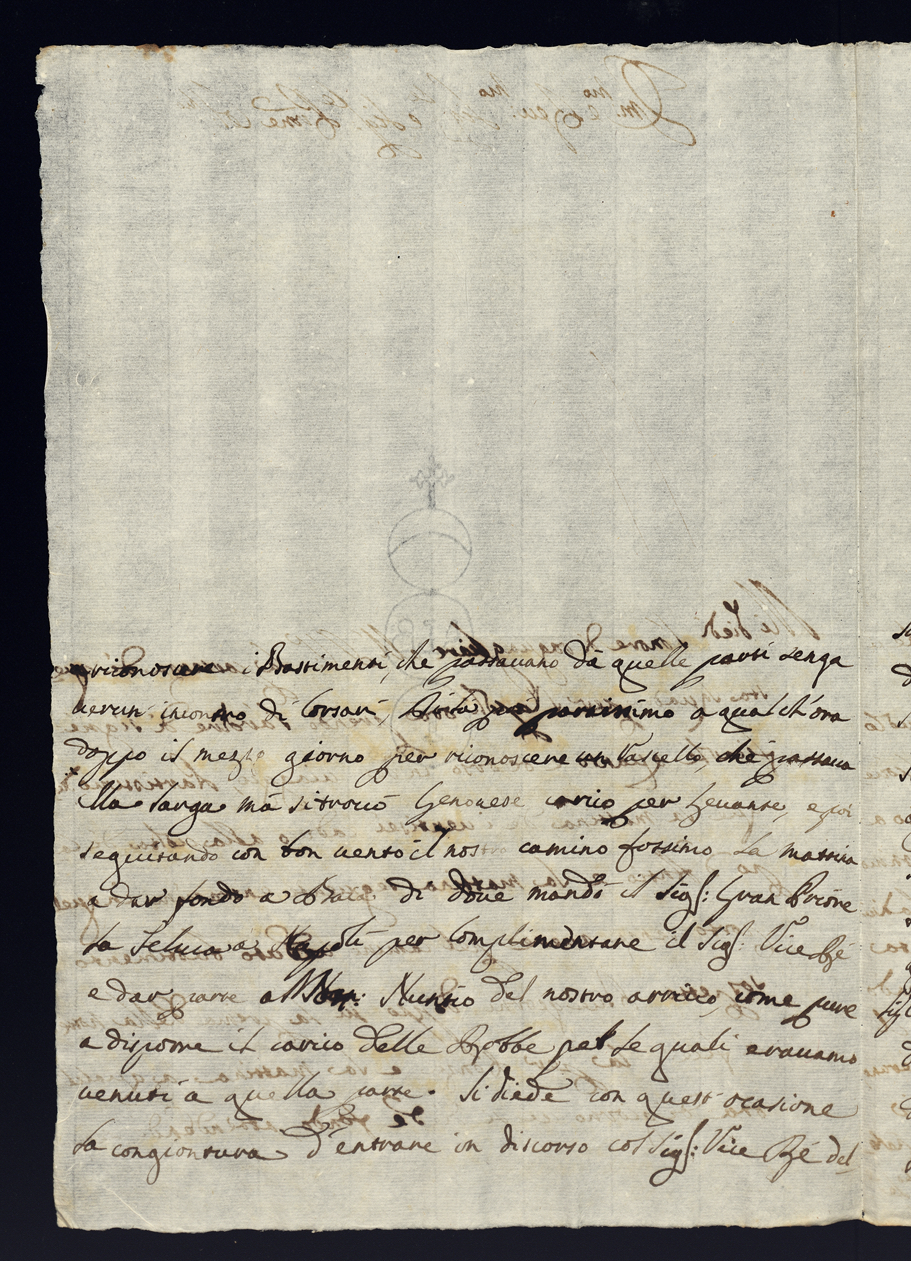 riconoscere i Bastimenti, che passavano da quelle parti senza
verun incontro di Corsari, partissimo a qualch'ora
doppo il mezzo giorno per riconoscere un Vascello, che passava
alla larga mà si trovò Genovese carico per Levante, e poi
seguitando con bon vento il nostro camino fossimo la mattina
a dar fondo a di dove mandò il Sigr: Gran Priore
la Feluca a Napoli per complimentare il Sigr: Vice Ré
e dar parte a Monr: Nuntio del nostro arrivo, come pure
a disporre il carico delle Robbe per le quali eravamo
venuti a quella parte. Si diede con quest'ocasione
la congiontura d'entrare in discorso col Sigr: Vice Ré del